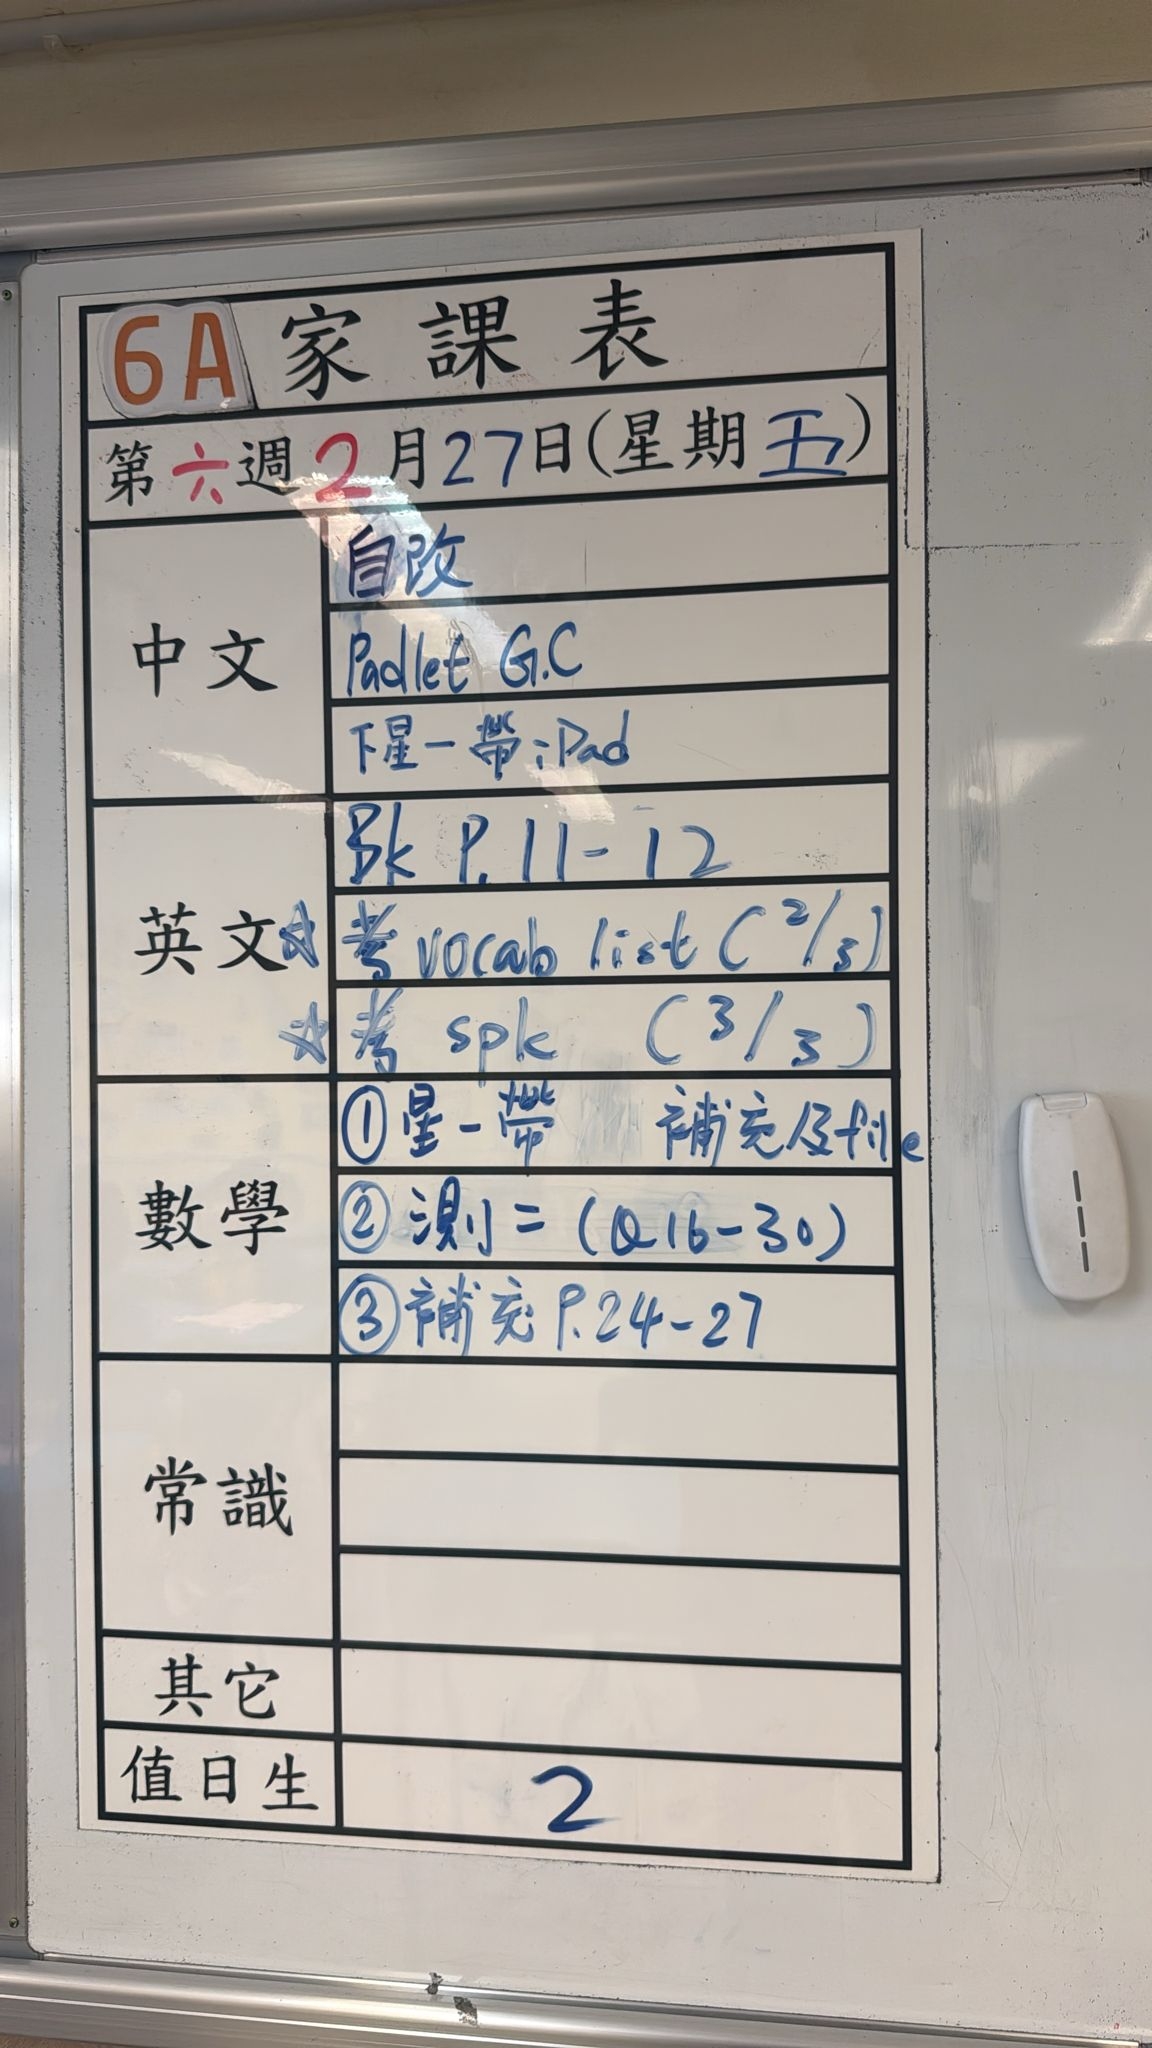 6A 家課表
第六週2月27日(星期五)
中文
自改
Padlet G.C
下星一帶iPad
英文
Bk P.11-12
☆考 vocab list (2/3)
☆考 spk (3/3)
數學
①星一帶 補充及file
②測二(Q16-30)
③補充P.24-27
常識
其它
值日生
2